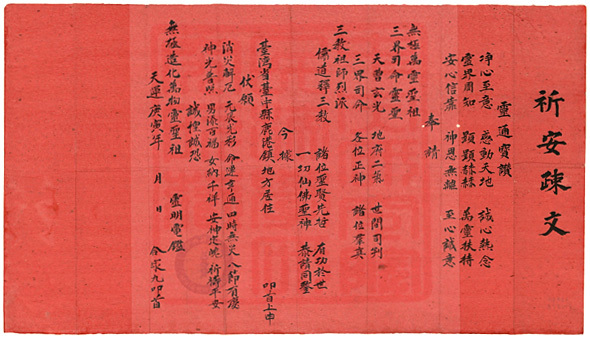 祈安疎文
靈通寶讚
淨心至意 感動天地 誠心無念
靈界周知 顯顯赫赫 萬靈扶持
安心信靠 神恩無疆 至心誠意
奉請
無極萬靈聖祖
三界司命靈聖
天曹玄光 地府二氣 世間司判
三界司命 各位正神 諸位眾真
三教祖師列派
儒道釋三教 諸位聖賢先哲 有功於世
一切仙佛聖神 恭請同鑒
今據
臺灣省臺中縣鹿港鎮地方居住 叩首上申
伏願
消災解厄 元辰光彩 命運亨通 四時無災 八節有慶
神光普照 男添百福 女納千祥 安神定魄 祈禱平安
誠惶誠恐
無極造化萬物靈聖祖 靈明電鑑
天運庚寅年 月 日 合家九叩首